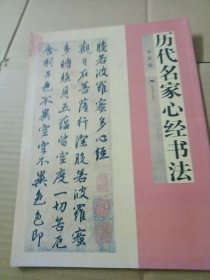 历代名家心经书法
般若波羅蜜多心經
觀自在菩薩行深般若波羅蜜
多時照見五蘊皆空度一切苦厄
舍利子色不異空空不異色色即